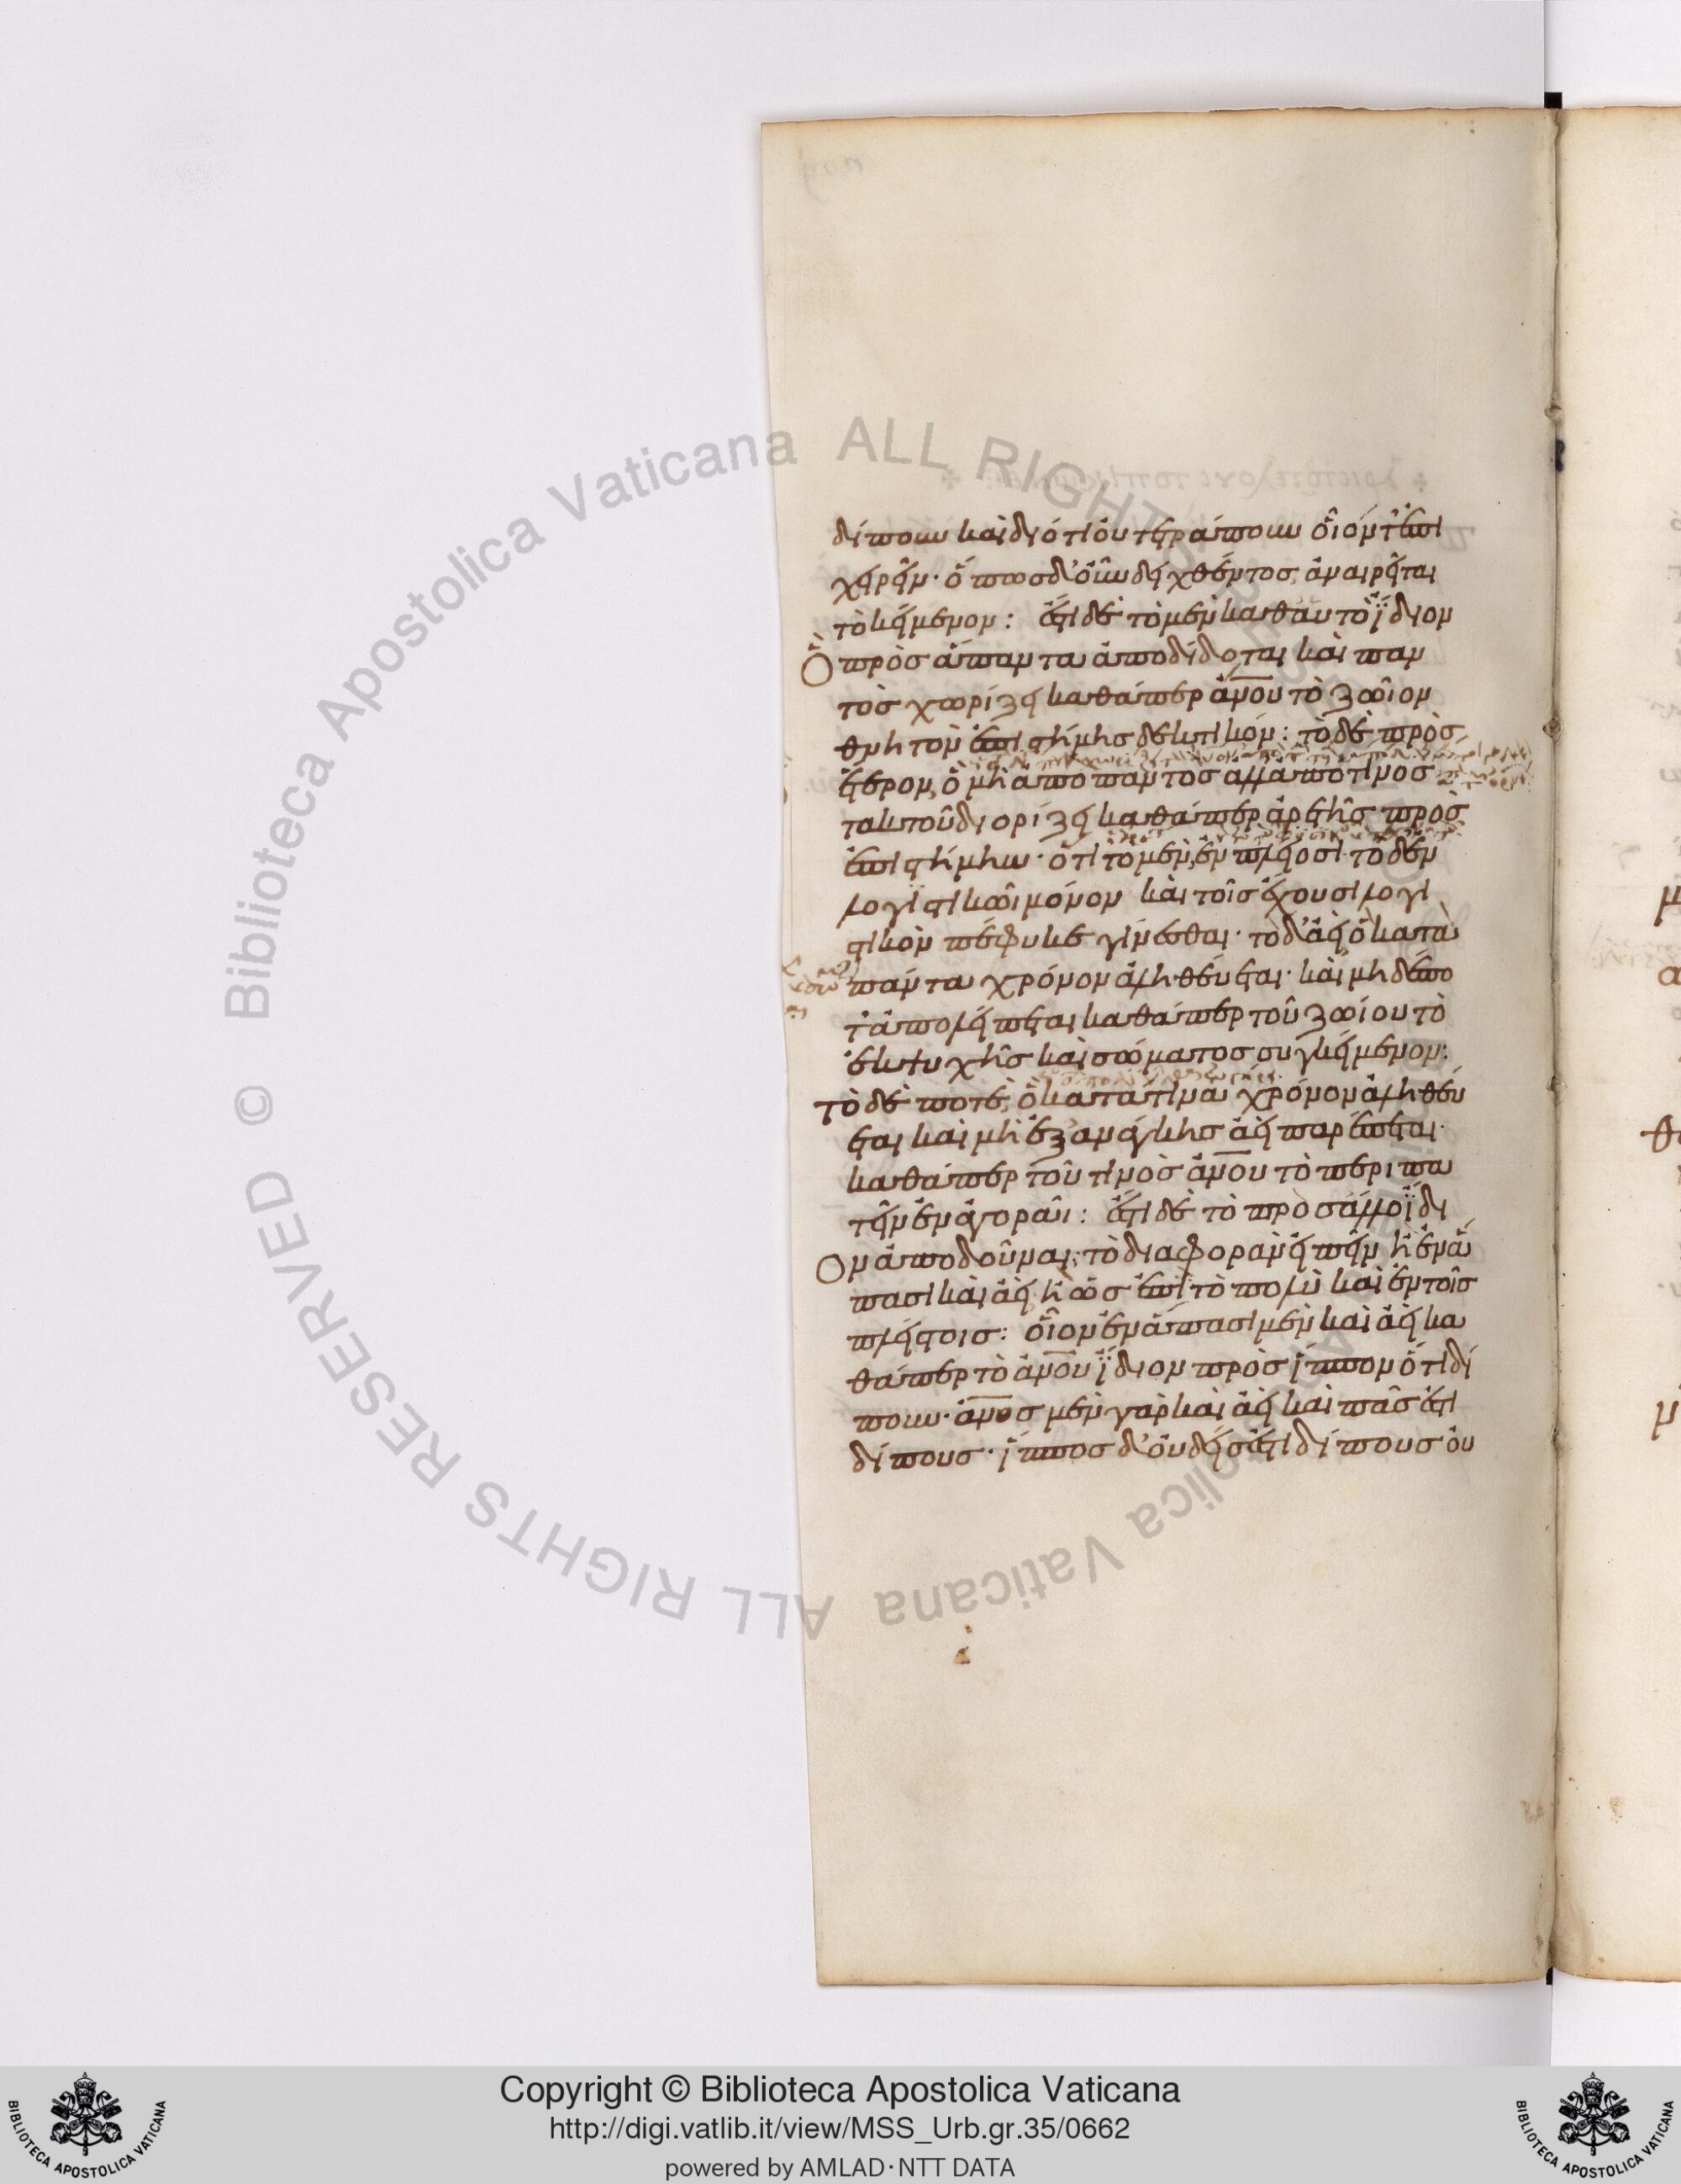 δίπουν καὶ διότι οὐ τετράπουν οἷόν τ' ἐπι
χειρεῖν· ὁποσοῦν δειχθέντος, ἀναιρεῖται
τὸ κείμενον: ἔστι δὲ τὸ μὲν καθ' αὑτὸ ἴδιον
Ὃ πρὸς ἅπαντα ἀποδίδοται καὶ παν
τὸς χωρίζει καθάπερ ἀνου τὸ ζῶιον
θνητὸν ἐπιστήμης δεκτικόν: τὸ δὲ πρὸς
ἕτερον, ὃ μὴ ἀπὸ παντὸς ἀλλ' ἀπό τινος
τακτοῦ διορίζει καθάπερ ἀρετῆς πρὸς
ἐπιστήμην· ὅτι τὸ μὲν, ἐν πλείοσι· τὸ δ' ἐν
λογιστικῶι μόνον καὶ τοῖς ἔχουσι λογι
στικὸν πέφυκε γίνεσθαι· τὸ δ' ἀεὶ, ὃ κατὰ
πάντα χρόνον ἀληθεύεται· καὶ μηδέπο
τ' ἀπολείπεται καθάπερ τοῦ ζώιου τὸ
ἐκ ψυχῆς καὶ σώματος συγκείμενον:
τὸ δὲ ποτὲ, ὃ κατά τινα χρόνον ἀληθεύ
εται καὶ μὴ ἐξ ἀνάγκης ἀεὶ παρέπεται·
καθάπερ τοῦ τινὸς ἀνου τὸ περιπα
τεῖν ἐν ἀγορᾶι: ἔστι δὲ τὸ πρὸς ἄλλο ἴδι
Ον ἀποδοῦναι, τὸ διαφορὰν εἰπεῖν ἢ ἐν ἅ
πασι καὶ ἀεί, ἢ ὡς ἐπὶ τὸ πολὺ καὶ ἐν τοῖς
πλείστοις: οἷον ἐν ἅπασι μὲν καὶ ἀεὶ κα
θάπερ τὸ ἀνου ἴδιον πρὸς ἵππον ὅτι δί
πουν· ἀνος μὲν γὰρ καὶ ἀεὶ καὶ πᾶς ἐστι
δίπους· ἵππος δ' οὐδείς ἐστι δίπους οὐ
ALL RIGHTS RESERVED © Biblioteca Apostolica Vaticana
Copyright © Biblioteca Apostolica Vaticana
http://digi.vatlib.it/view/MSS_Urb.gr.35/0662
powered by AMLAD·NTT DATA
BIBLIOTECA APOSTOLICA VATICANA
BIBLIOTECA APOSTOLICA VATICANA